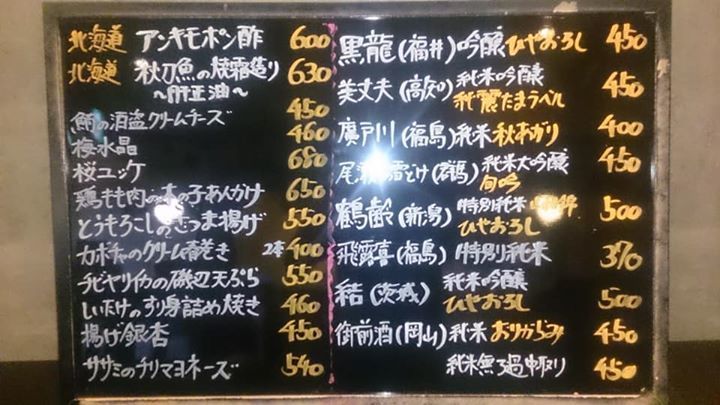 北海道 アンキモポン酢 600
北海道 秋刀魚の焼霜造り 630
〜肝正油〜
鮪の酒盗クリームチーズ 450
梅水晶 460
桜ユッケ 680
鶏もも肉の木の子あんかけ 650
とうもろこしのさつま揚げ 550
カボチャのクリーム春巻き 2本 400
チビヤリイカの磯辺天ぷら 550
しいたけのすり身詰め焼き 460
揚げ銀杏 450
ササミのチリマヨネーズ 540
黒龍(福井)吟醸 ひやおろし 450
美丈夫(高知)純米吟醸 450
純麗たまラベル
廣戸川(福島)純米 秋あがり 400
尾瀬の雪どけ(群馬)純米大吟醸 450
旬吟
鶴齢(新潟)特別純米 500
ひやおろし
飛露喜(福島)特別純米 370
結(茨城)純米吟醸
ひやおろし 500
御前酒(岡山)純米 おりがらみ 450
純米無ろ過中取り 450